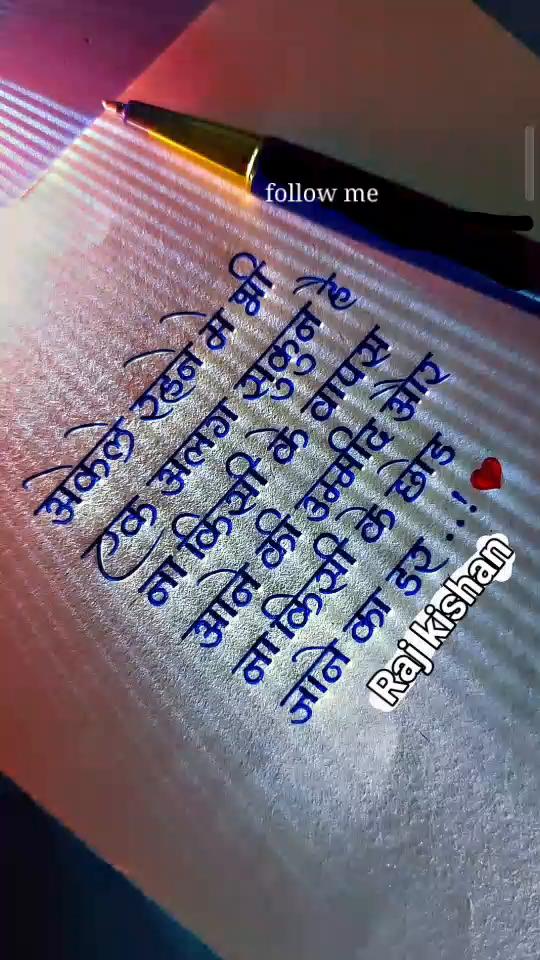 follow me
अकेले रहने मे भी
एक अलग सुकुन है
ना किसी के वापस
आने की उम्मीद और
ना किसी के छोड
जाने का डर...!
Raj kishan